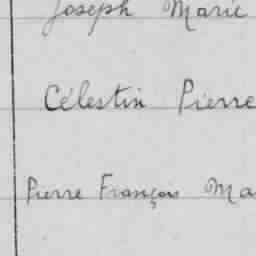 Joseph Marie
Célestin Pierre
Pierre François Ma